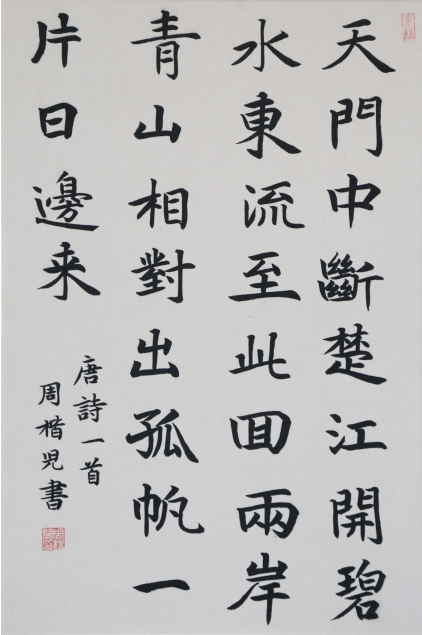 天門中斷楚江開碧
水東流至此回兩岸
青山相對出孤帆一
片日邊来
唐詩一首
周楷児書